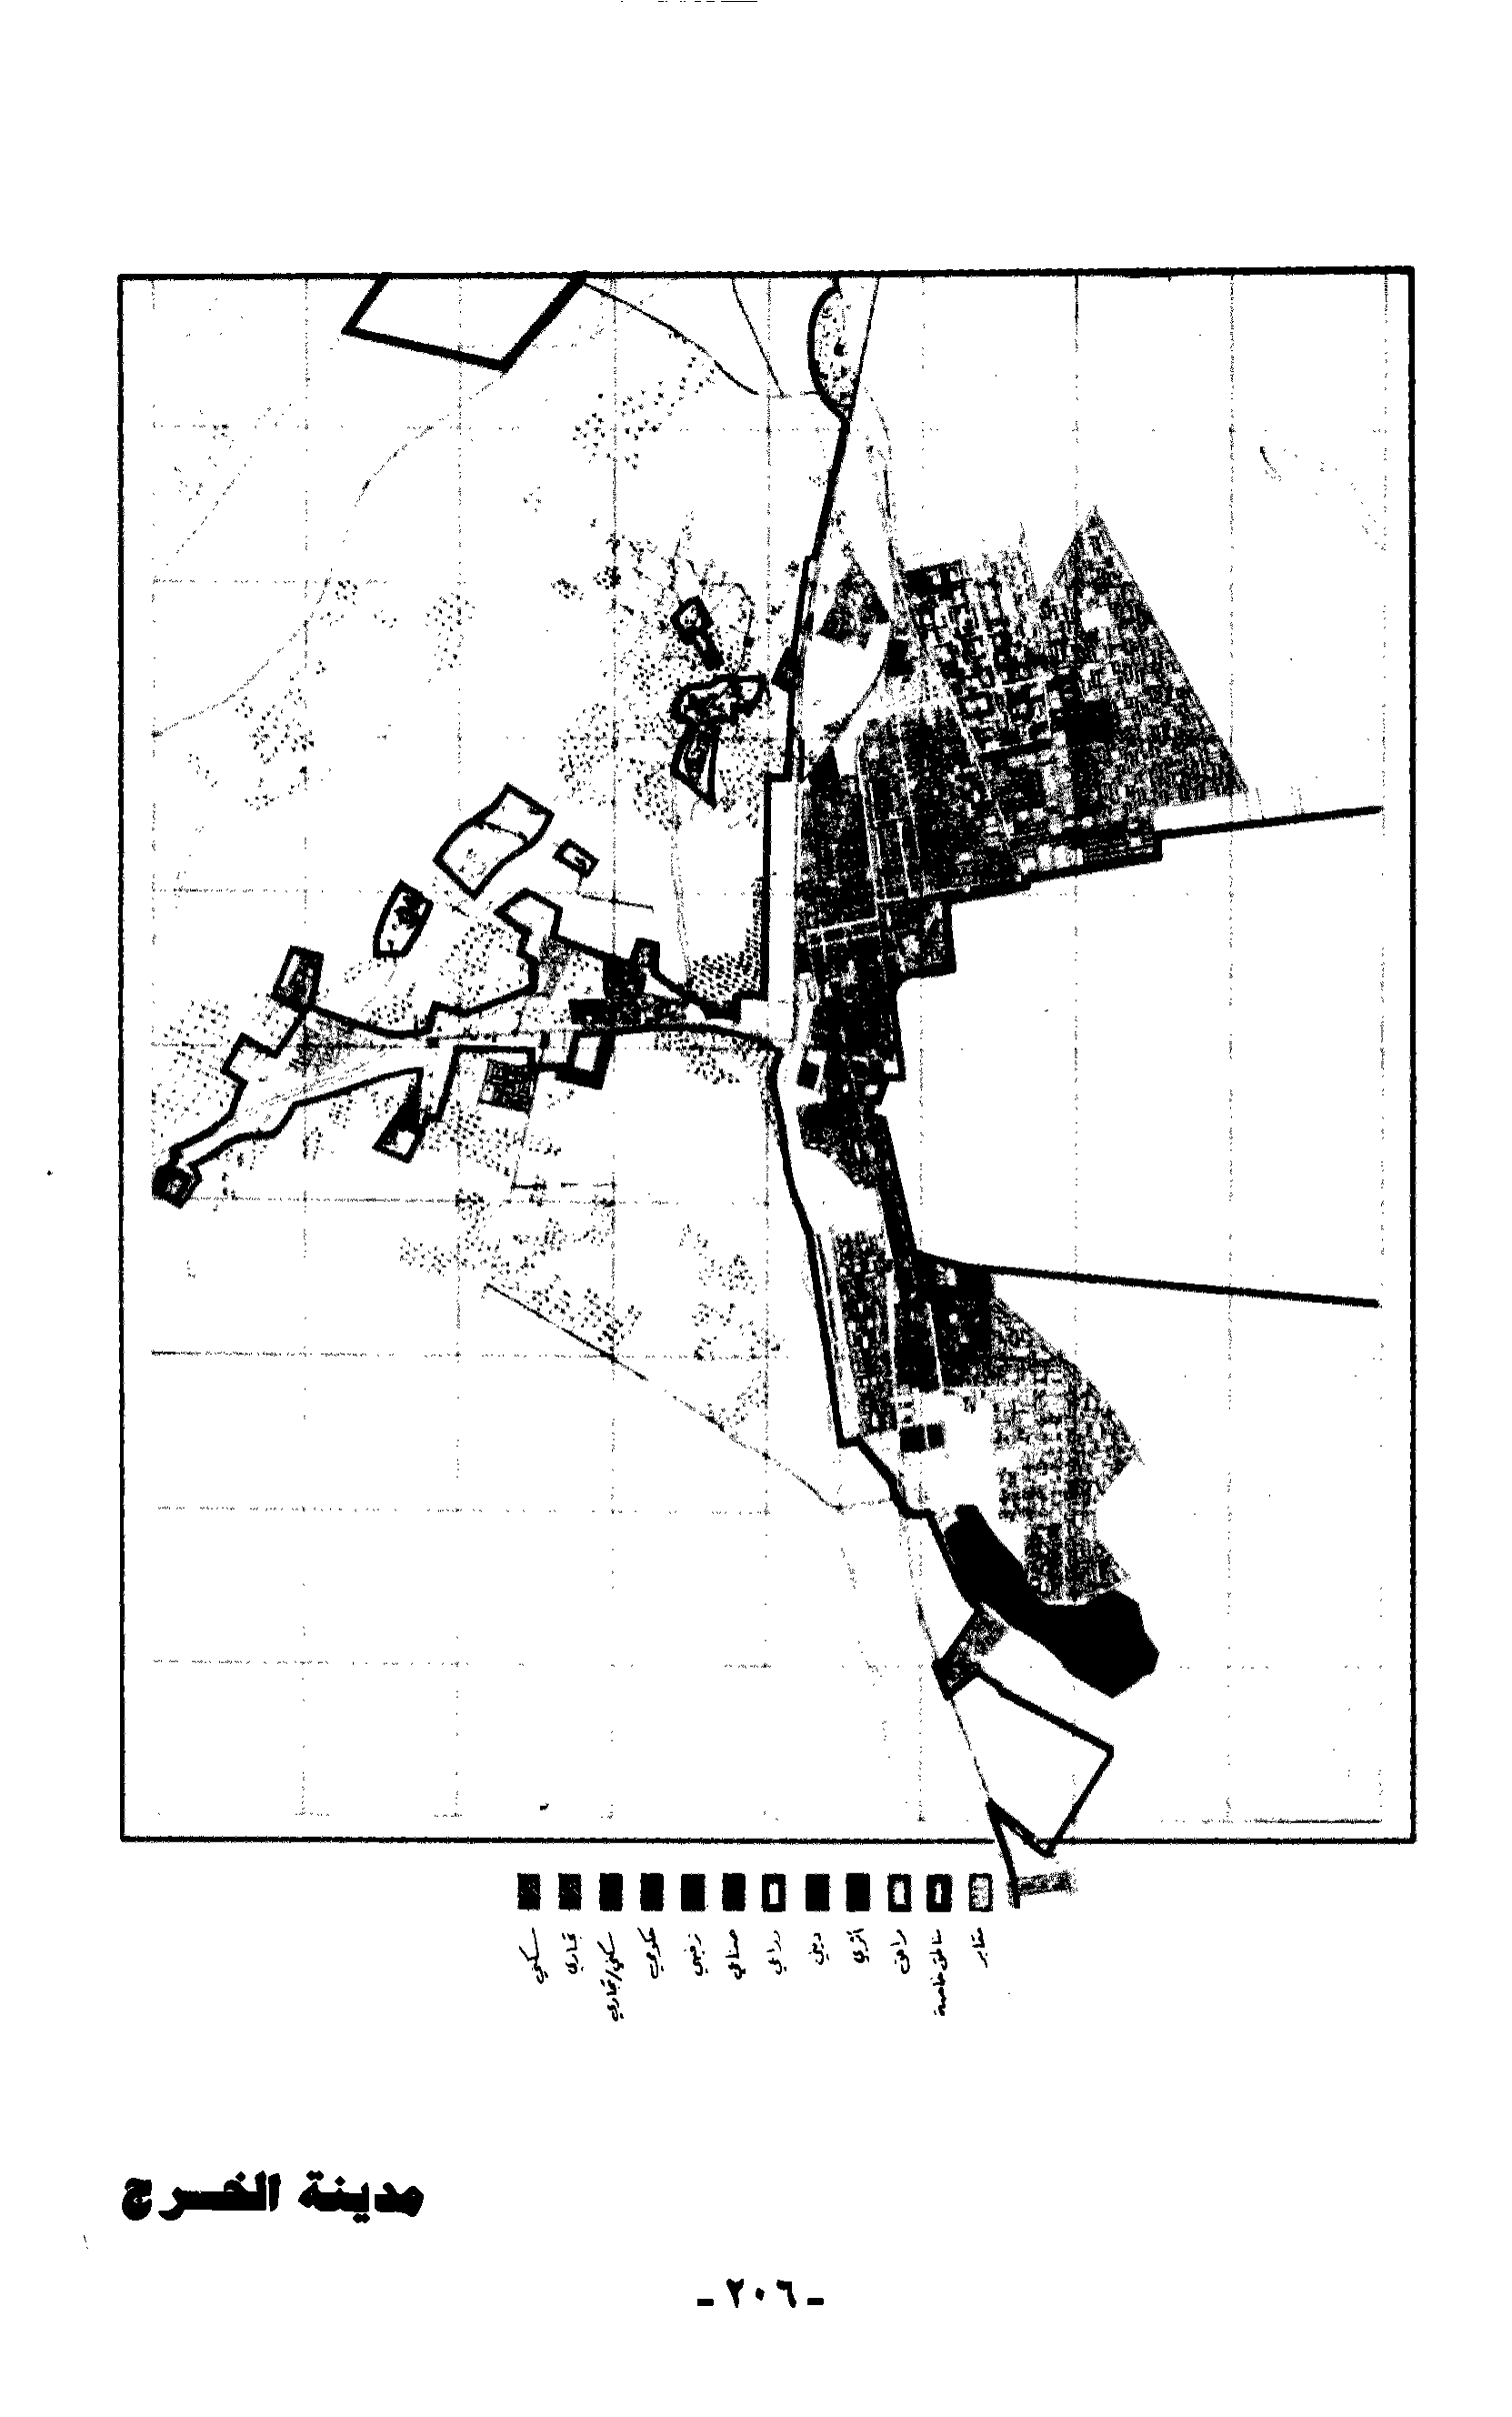 سكني
تجاري
سكني/تجاري
حكومي
ترفيهي
صناعي
زراعي
ديني
أثري
مرافق
مناطق خاصة
مقابر
مدينة الخرج
- ٢٠٦ -